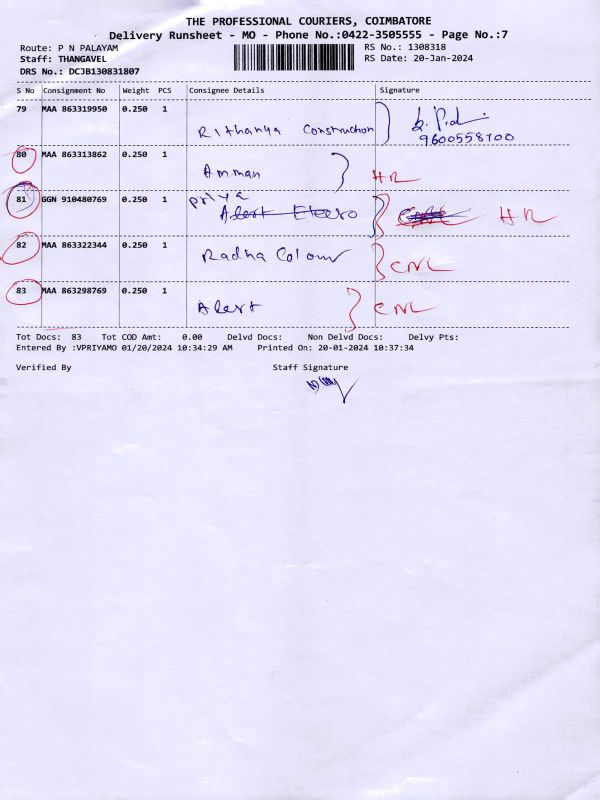 THE PROFESSIONAL COURIERS, COIMBATORE
Delivery Runsheet - MO - Phone No.:0422-3505555 - Page No.:7
Route: P N PALAYAM RS No.: 1308318
Staff: THANGAVEL RS Date: 20-Jan-2024
DRS No.: DCJB130831807
S No Consignment No Weight PCS Consignee Details Signature
79 MAA 863319950 0.250 1
Rithanya Construction 9600558700
80 MAA 863313862 0.250 1
Amman HR
81 GGN 910480769 0.250 1 priya
Alert Electro HR
82 MAA 863322344 0.250 1
Radha Colour CNL
83 MAA 863298769 0.250 1
Alert CNL
Tot Docs: 83 Tot COD Amt: 0.00 Delvd Docs: Non Delvd Docs: Delvy Pts:
Entered By :VPRIYAMO 01/20/2024 10:34:29 AM Printed On: 20-01-2024 10:37:34
Verified By Staff Signature